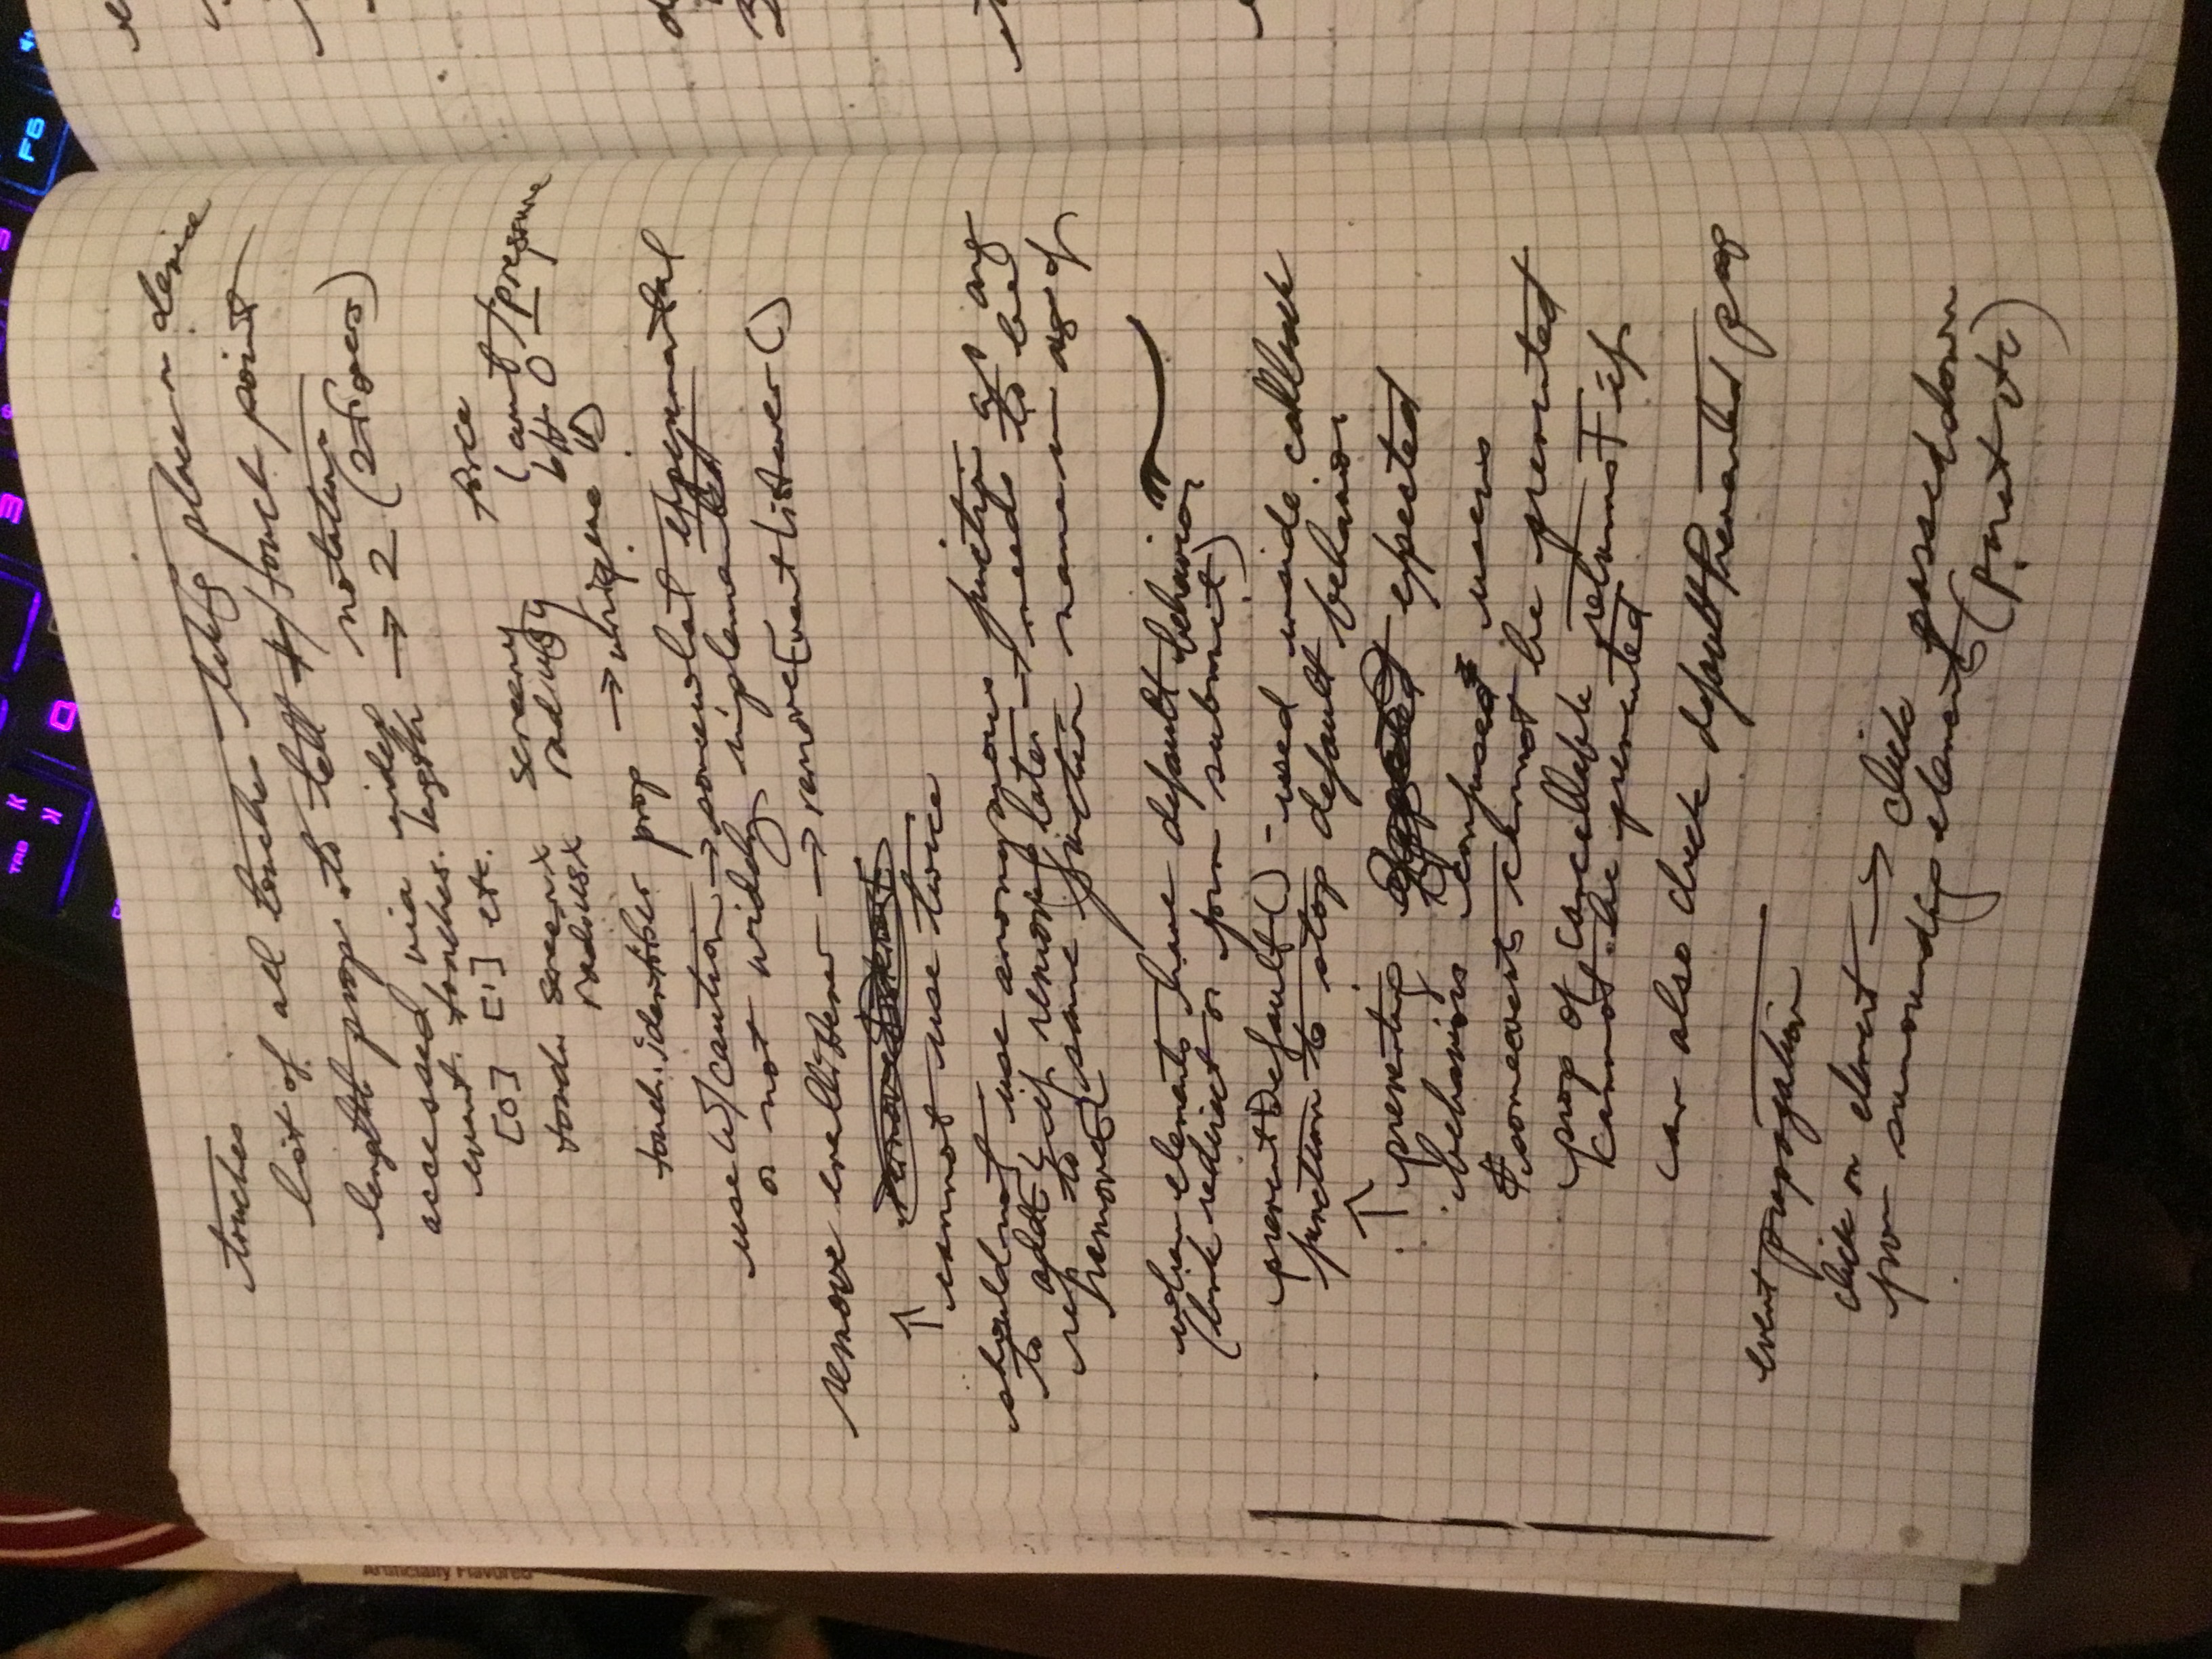 TAB
3
Q
F6
touches
list of all touches taking place on device
length prop to tell #/touch point
accessed via index notation
event.touches.length → 2 (2 fingers)
[0] [1] etc.
touch. screenx screeny force
radiusx radiusy (amt/pressure
btt 0 -
touch.identifier prop → unique ID
use w/caution → somewhat experimental
or not widely implemented
remove → removeEventListener()
↑ cannot use twice
should not use anonymous function as arg
to addEL if removing later → needs to be
ref to same function name in arg of
removeEL
when elements have default behavior
(link redirect or form submit)
preventDefault() - used inside callback
function to stop default behavior
↑ preventing expected
behaviors confuses users
some events cannot be prevented
prop of cancellable returns T if
cannot be prevented
can also check defaultPrevented prop
event propogation
click on element → click passed down
from surrounding elements (parent etc)